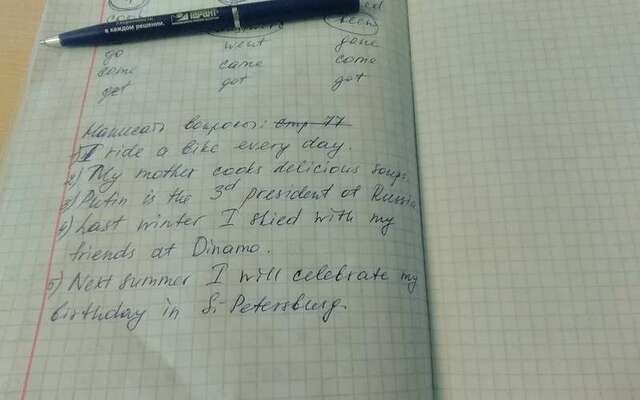 в каждом решении. ГАРАНТ
been
go went gone
come came come
get got got
Написать вопросы: стр 77
1) I ride a bike every day.
2) My mother cooks delicious soups.
3) Putin is the 3d president of Russia
4) Last winter I skied with my
friends at Dinamo.
5) Next summer I will celebrate my
birthday in St-Petersburg.